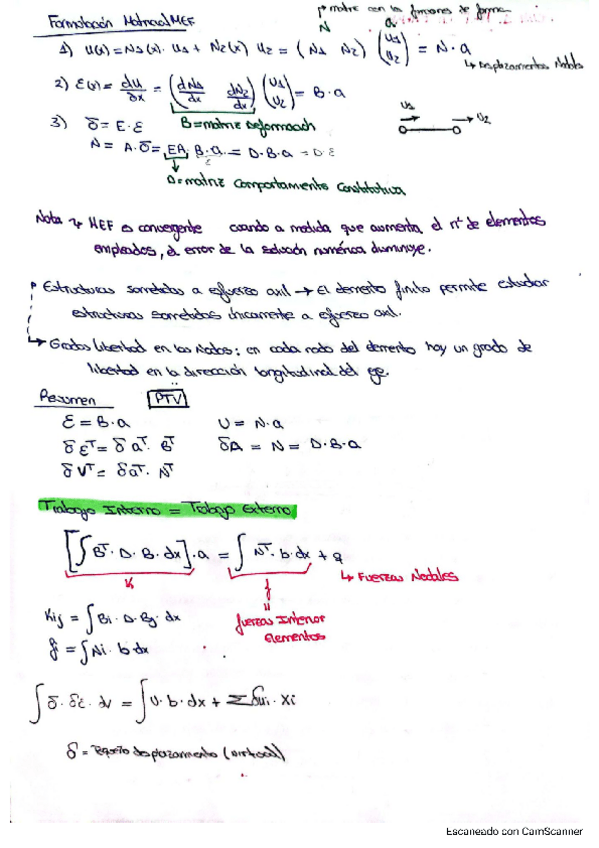 Formulación Matricial MEF
matriz con las funciones de forma
N a
1) u(x) = N1(x) · u1 + N2(x) u2 = (N1 N2) (u1 u2) = N · a
↳ Desplazamientos Nodales
2) ε(x) = du/dx = (dN1/dx dN2/dx) (u1 u2) = B · a
B = matriz Deformación
u1 → u2
3) σ = E · ε
N = A · σ = EA · B · a = D · B · a = D · ε
D = matriz comportamiento constitutiva
Nota ↳ MEF es convergente cuando a medida que aumenta el nº de elementos
empleados, el error de la solución numérica disminuye.
Estructuras sometidas a esfuerzo axil → El elemento finito permite estudiar
estructuras sometidas únicamente a esfuerzo axil.
↳ Grados libertad en los Nodos: en cada nodo del elemento hay un grado de
libertad en la dirección longitudinal del eje.
Resumen PTV
ε = B · a U = N · a
δεᵀ = δaᵀ · Bᵀ σA = N = D · B · a
δVᵀ = δaᵀ · Nᵀ
Trabajo Interno = Trabajo Externo
[∫Bᵀ · D · B · dx] · a = ∫Nᵀ · b · dx + q
↳ Fuerzas Nodales
K f
= Fuerzas Interior
Elementos
Kij = ∫Bi · D · Bj · dx
f = ∫Ni · b · dx
∫σ · δε · dv = ∫U · b · dx + Σδui · Xi
δ = Pequeño desplazamiento (virtual)
Escaneado con CamScanner